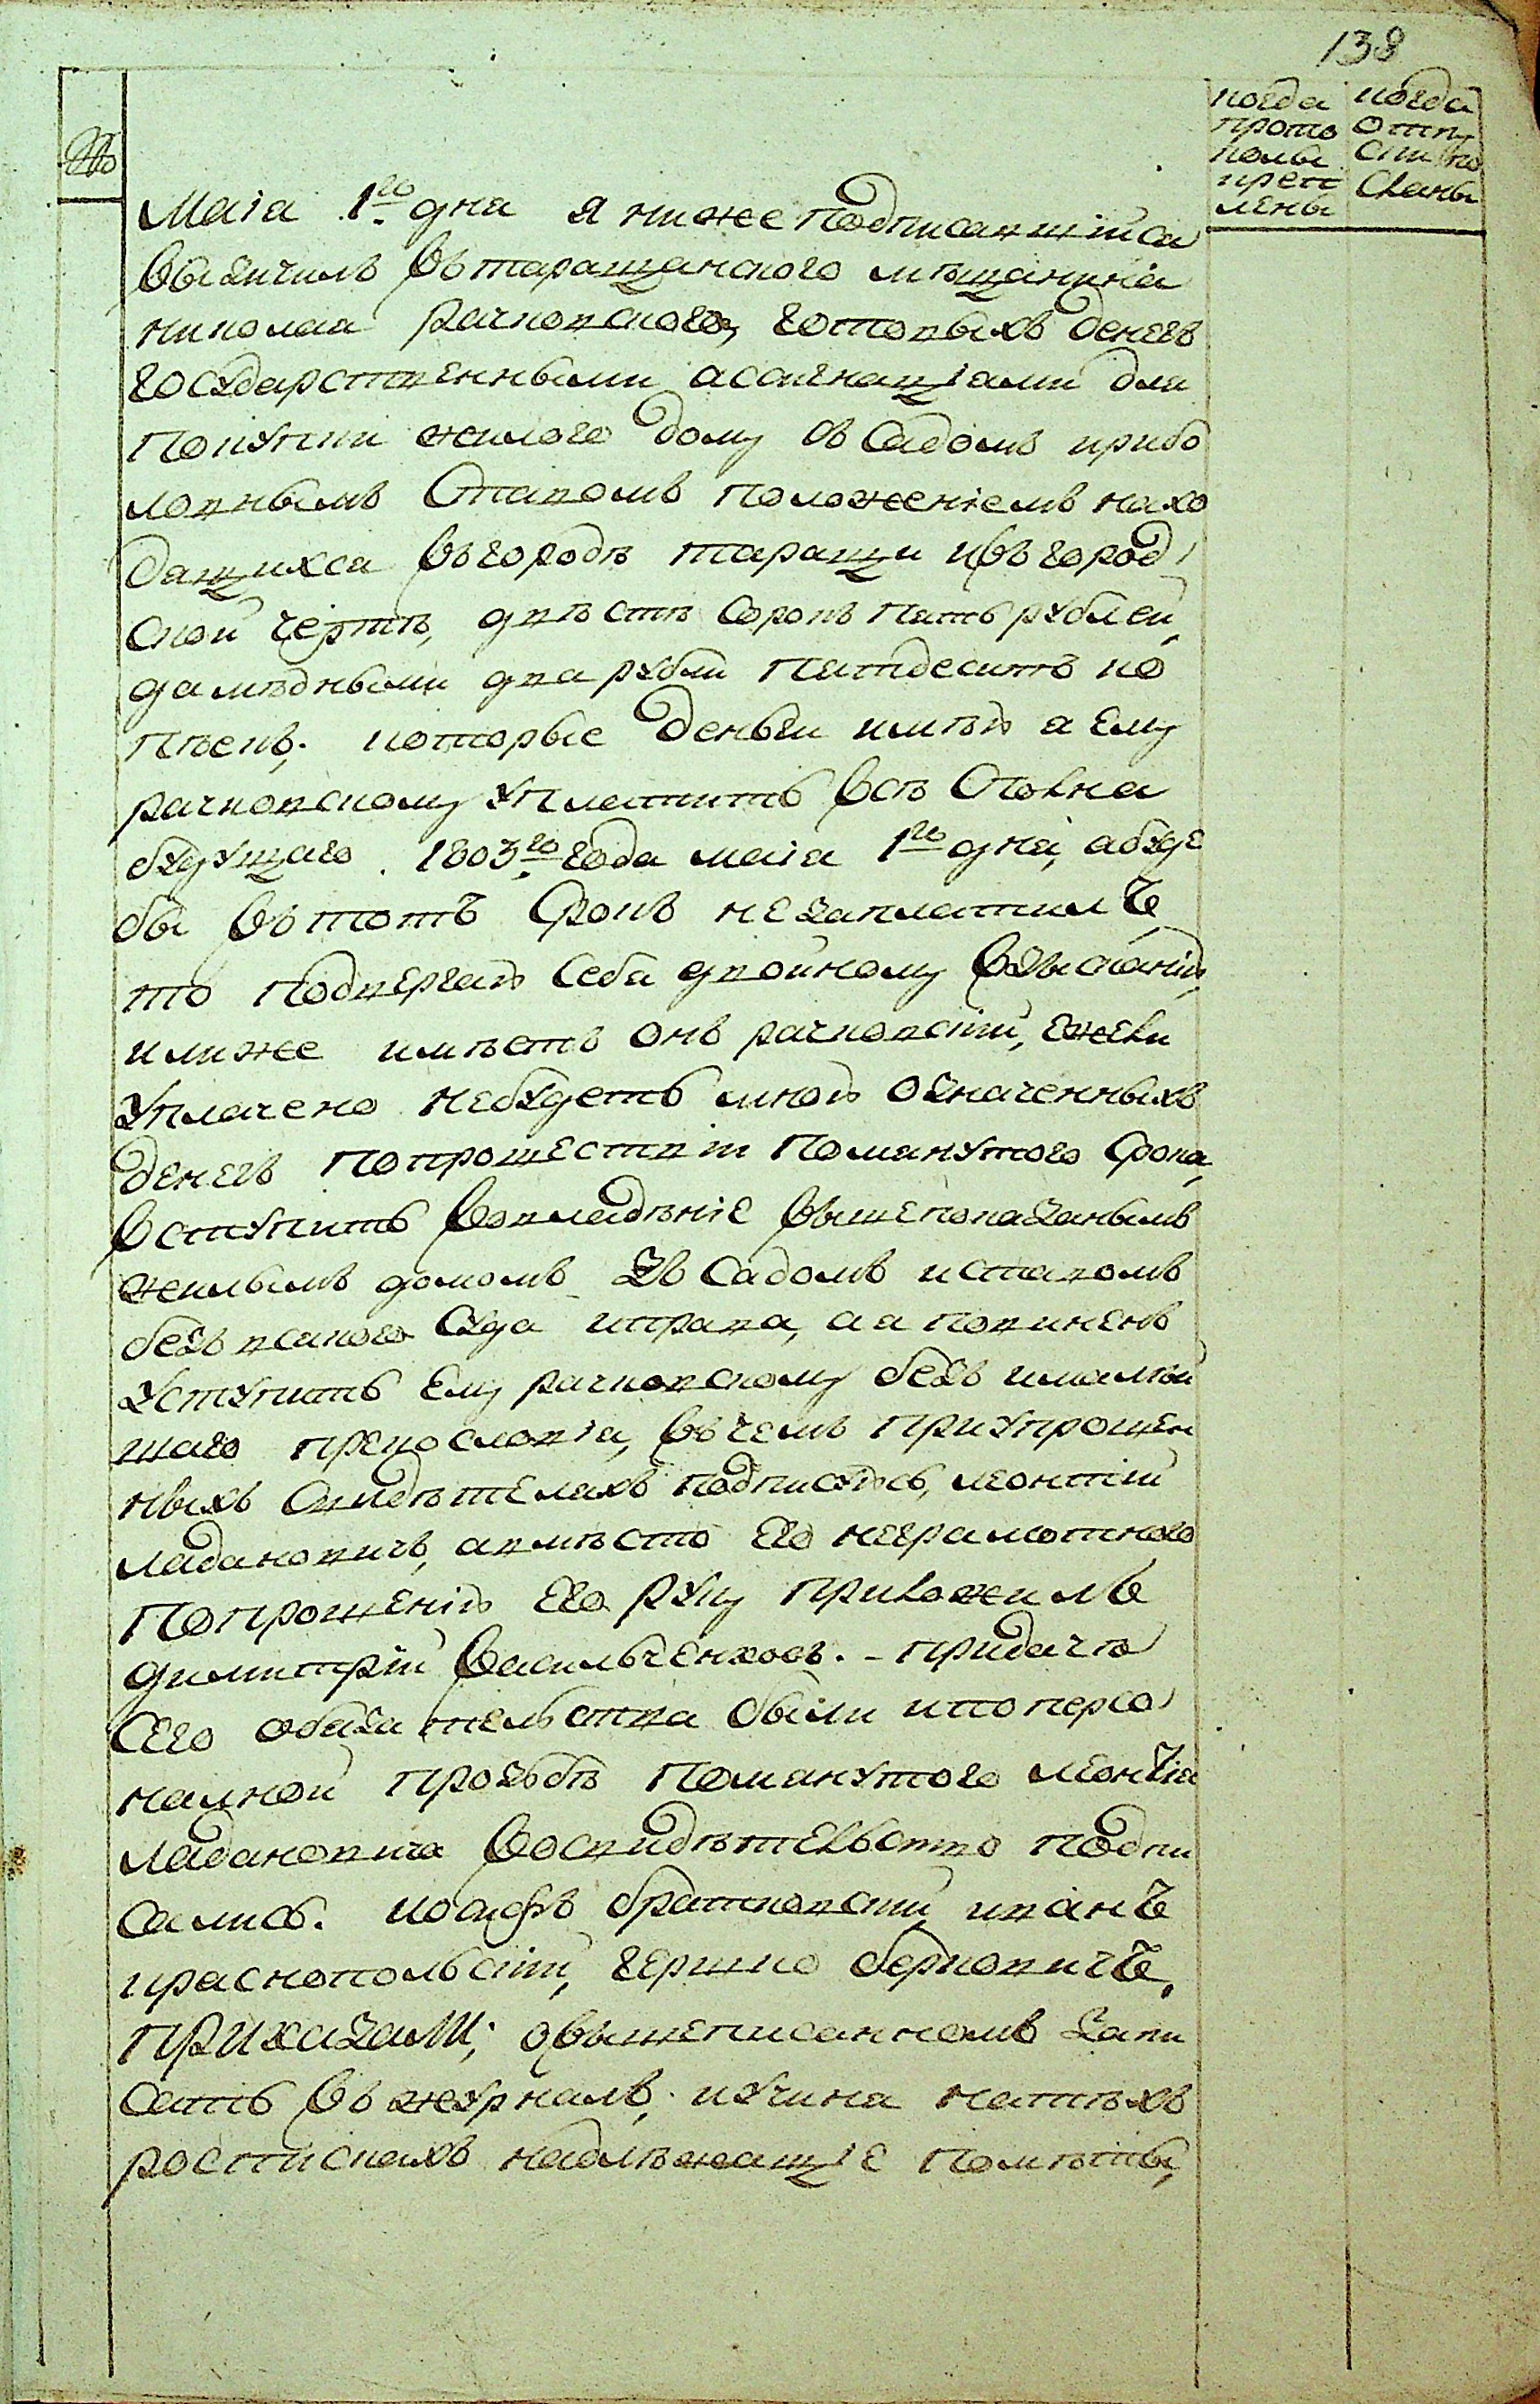 138
№
когда прото колы креп лены
когда отпу сти по сланы
Маія 1го дня я нижеподписавшійся
взычилъ въ таращанского мѣщанина
николая рачковского, готовыхъ денегъ
государственными ассигнаціами для
покупки жилого дому съ садомъ и рибо
ловнымъ ставомъ положеніемъ нахо
дящихся въ городѣ таращи и въ город
ской чертѣ, двѣстѣ сорокъ пять рублей,
да мѣдными два рубли пятдесятъ ко
пѣекъ, которые деньги имѣю я ему
рачковскому уплатить всѣ сполна
будущаго 1803го года маія 1го дня, абуде
бы въ тотъ срокъ незаплатилъ,
то подвергаю себя двойному взысканію,
илиже имѣетъ онъ рачковскій, ежели
уплачено небудетъ мною означенныхъ
денегъ попрошествіи помянутого срока,
вступить вовладѣніе вышепоказанымъ
жилымъ домомъ зъ садомъ и ставомъ
безъ всякого суда и права, а я повиненъ
уступить ему рачковскому безъ ималѣй
шаго прекословія, въ чемъ при упрошен
ныхъ свидѣтеляхъ подписуюсь, леонтій
ладановичъ, а вмѣсто его неграмотного
попрошенію его руку приложилъ
димитрій васильченковъ. - придачѣ
сего обязательства были и по персо
налной прозьбѣ помянутого леонтія
ладановича восвидѣтельство подпи
сались. иосифъ братковскій, иванъ
краснопольскій, гершко берковичъ,
приказали; о вышеписанномъ запи
сать въ журналъ, и учиня на тѣхъ
росписках надлѣжащіе помѣты,